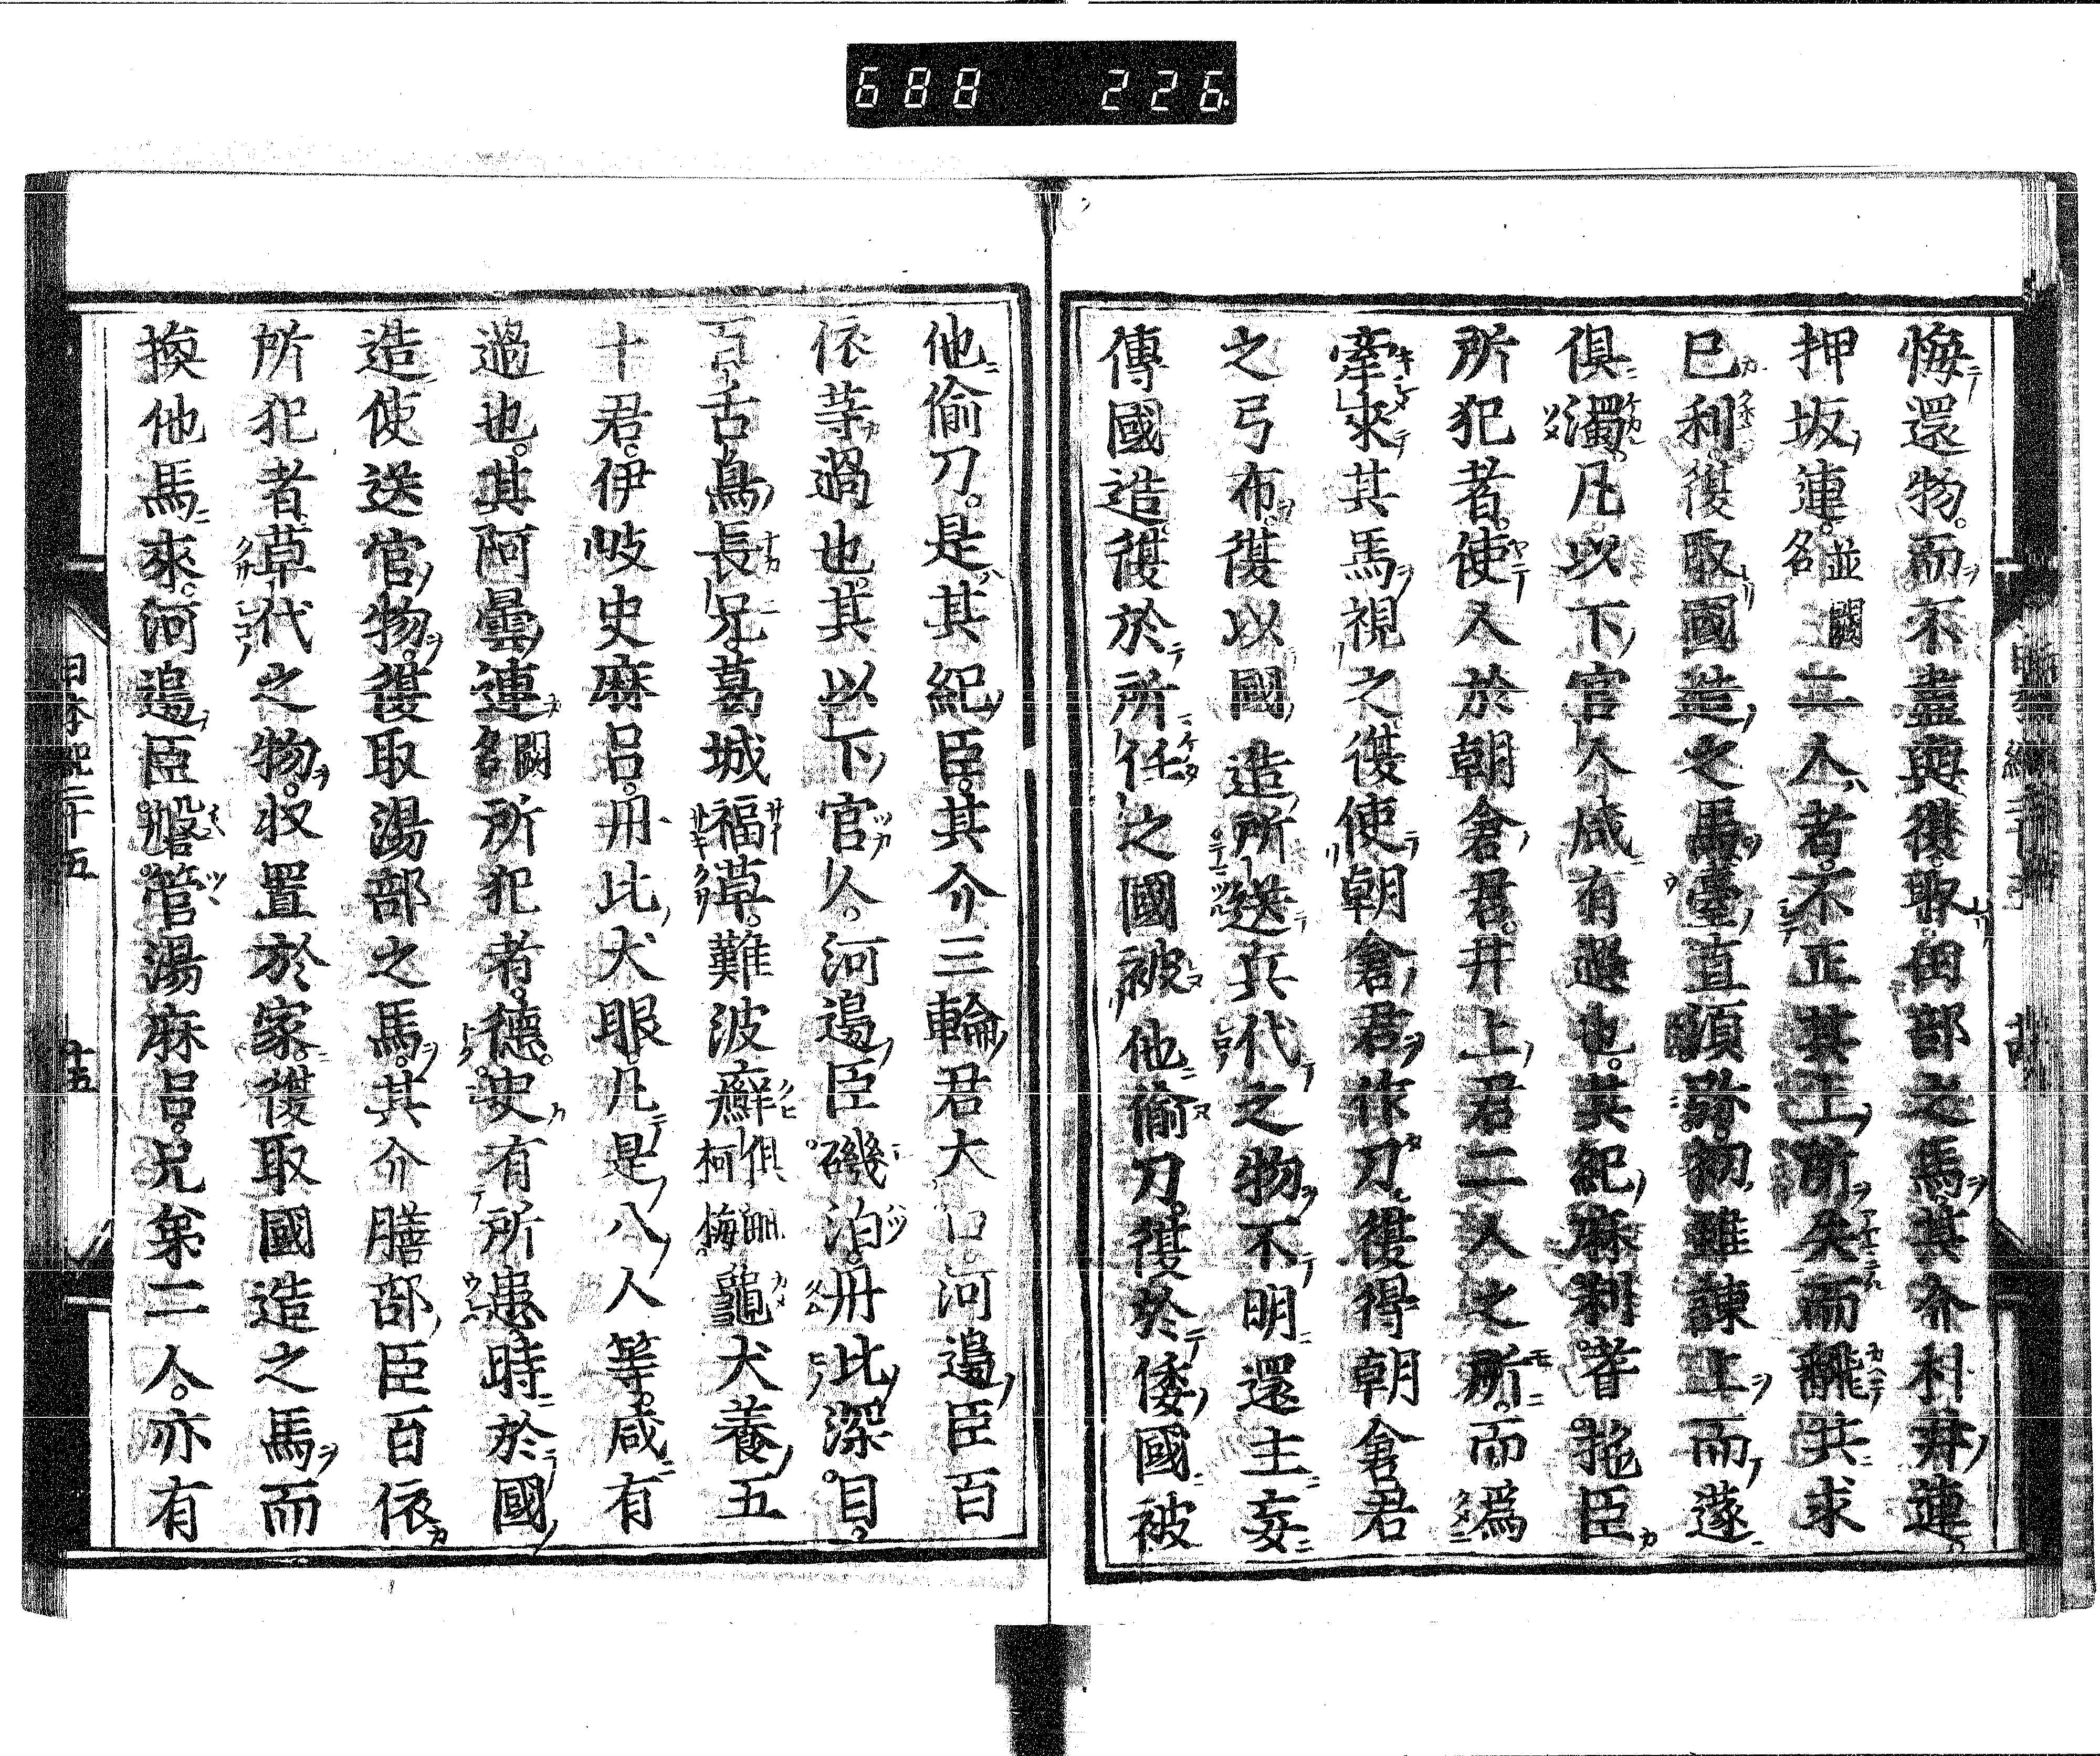 688 226
悔還物。而不盡與復。取田部之馬。其介朴井連。
押坂連。並闕名二人者。不正其上所失而飜共求
巳利復取國造之馬。臺直須弥。初雖諫上而遂
俱濁。凡以下官人咸有過也。其紀麻利耆拕臣
所犯者。使人於朝倉君。井上君二人之所。而爲
牽來其馬視之。復使朝倉君作刀。復得朝倉君
之弓布。復以國造所送兵代之物。不明還主妄
傳國造。復於所任之國被他偷刀。復於倭國被
他偷刀。是其紀臣。其介三輪君大口。河邉臣百
依等過也。其以下官人。河邉臣磯泊。丹比深目。
百舌鳥長兄。葛城福草。難波癬龜俱毗柯梅犬養五
十君。伊岐史麻呂。丹比犬眼。凡是八人等。咸有
過也。其阿曇連闕名所犯者。德史有所患時。於國
造使送官物。復取湯部之馬。其介膳部臣百依
所犯者草代之物。収置於家。復取國造之馬而
換他馬來。河邉臣磐管湯麻呂。兄弟二人。亦有
日本紀二十五 十五